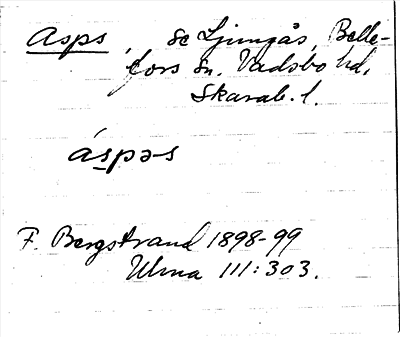 Asps, se Ljungås, Belle-
fors sn. Vadsbo hd,
Skarab. l.
áspə-s
F. Bergstrand 1898-99
Ulma 111:303.